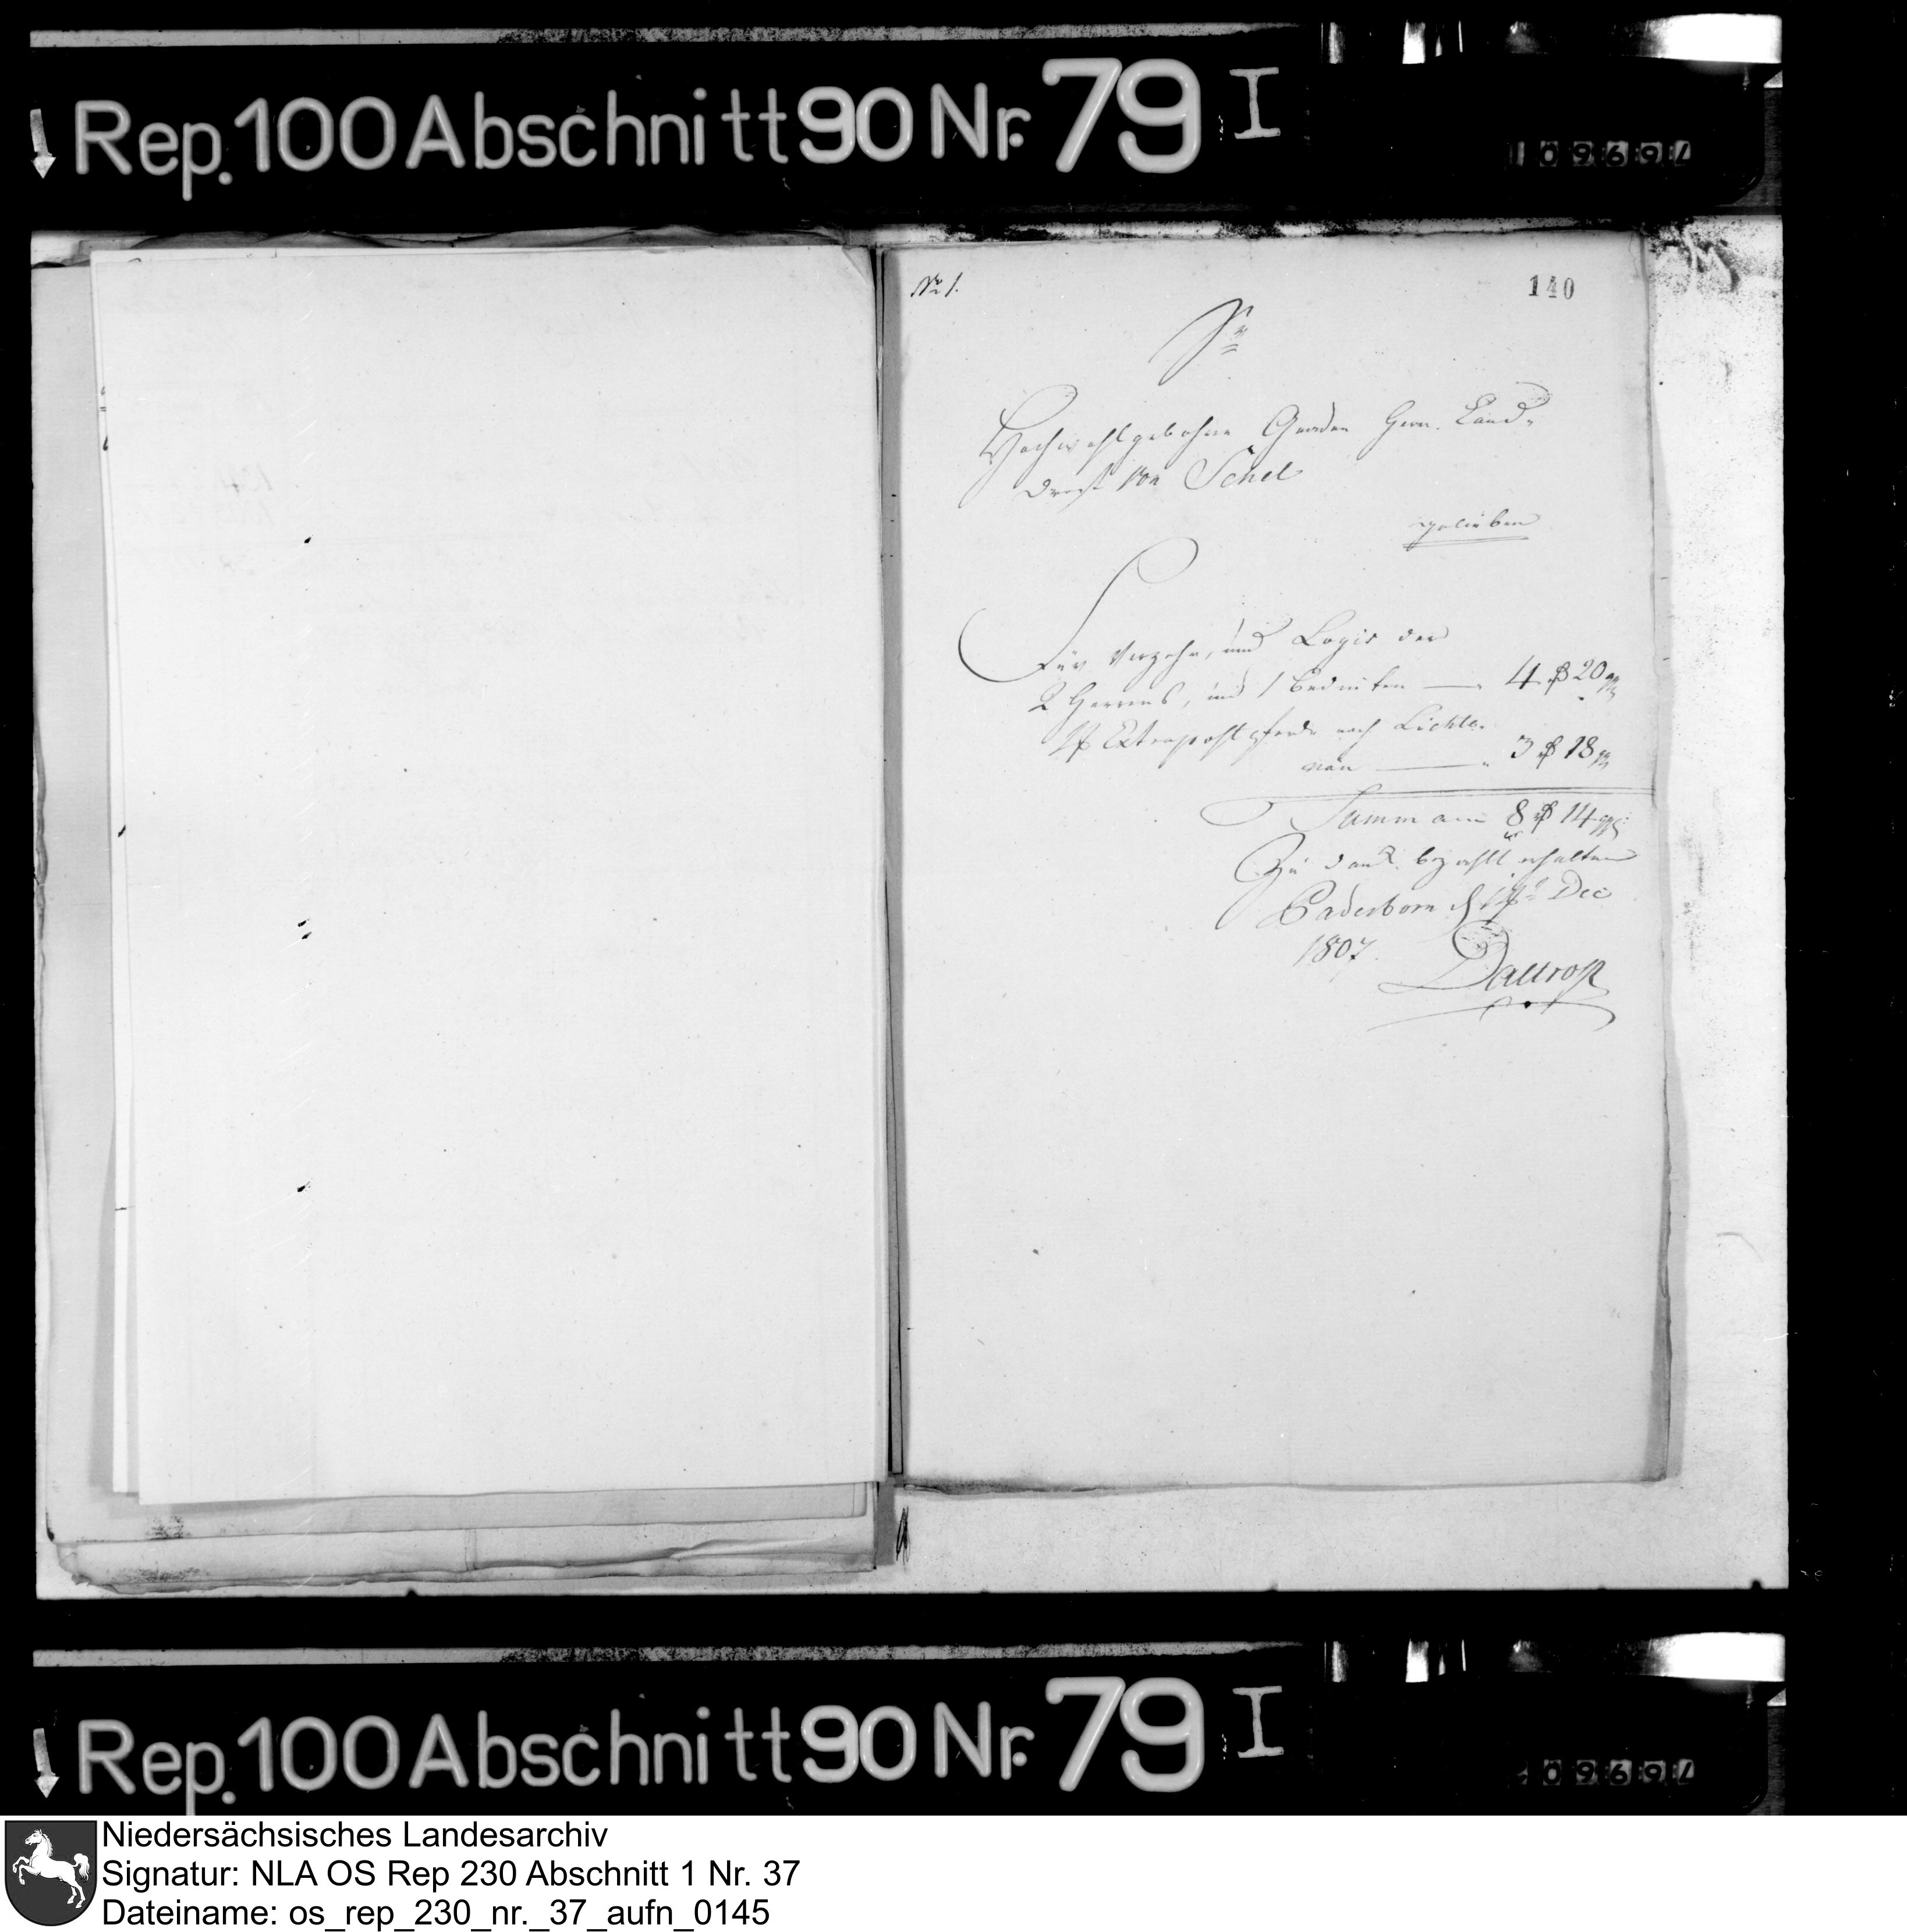 Rep. 100 Abschnitt 90 Nr. 79 I
109697
No 1.
140
Sr
Hochwohlgebohrne Gnaden Herrn Land-
drost von Schel
gelieben
Für Verzehr, und Logis der
2 Herrens, und 1 Bedienten — 4 rthl 20 ggr
Extrapostpferde nach Lichte-
nau — 3 rthl 18 ggr
Summa 8 rthl 14 ggr
Zu dank bezahlt erhalten
Paderborn d Dec
1807.
Daltrop
Rep. 100 Abschnitt 90 Nr. 79 I
09697
Niedersächsisches Landesarchiv
Signatur: NLA OS Rep 230 Abschnitt 1 Nr. 37
Dateiname: os_rep_230_nr._37_aufn_0145